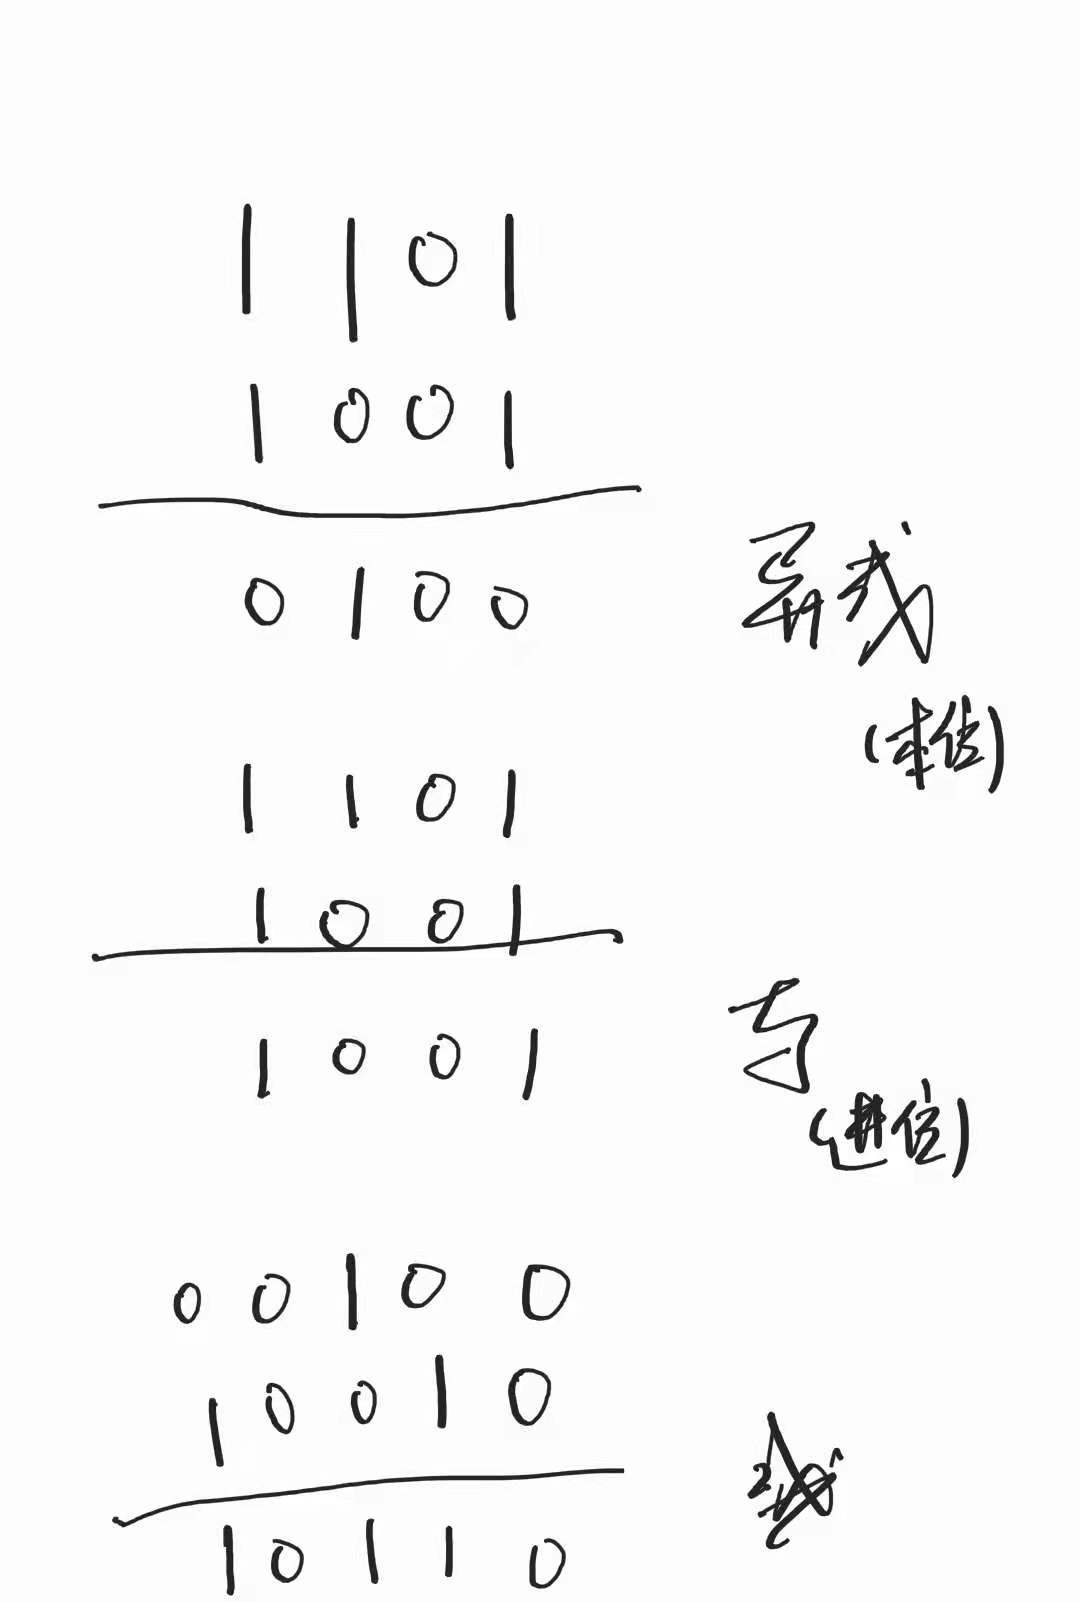 1 1 0 1
1 0 0 1
0 1 0 0
异或
(本位)
1 1 0 1
1 0 0 1
1 0 0 1
与
(进位)
0 0 1 0 0
1 0 0 1 0
1 0 1 1 0